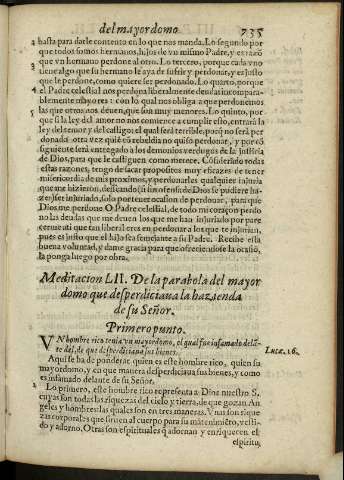 del mayordomo 735
hasta para darle contento en lo que nos manda. Lo segundo por
que todos somos hermanos, hijos de vn mismo Padre, y es razō
que vn hermano perdone al otro. Lo tercero, porque cada vno
tiene algo que su hermano le aya de sufrir y perdonar, y es justo
que le perdone, como quiere ser perdonado. Lo quarto, porque
el Padre celestial nos perdona liberalmente deudas incompara-
blemente mayores: con lo qual nos obliga a que perdonemos
las que otros nos deuen, que son muy menores. Lo quinto, por-
que si la ley del amor no nos conuence a cumplir esto, entrarà la
ley del temor y del castigo: el qual serà terrible, porq̃ no serà per
donada otra vez quiē cō rebeldia no quiso perdonar, y por cō
siguiente serà entregado a los demonios verdugos de la justicia
de Dios, para que le castiguen como merece. Cōsiderādo todas
estas razones, tengo de sacar propositos muy eficazes de tener
misericordia de mis proximos, y perdonarles qualquier injuria
que me hizieren, desseando (si sin ofensa de Dios se pudiere ha-
zer) ser injuriado, solo por tener ocasion de perdonar, para que
Dios me perdone. O Padre celestial, de todo mi coraçon perdo
no las deudas que me deuen los que me han injuriado por pare
cerme a ti que tan liberal eres en perdonar a los que te injurian,
pues es justo que el hijo sea semejante a su Padre. Recibe esta
buena voluntad, y dame gracia para que ofreciendose la ocasiō,
la ponga luego por obra.
Meditacion LII. De la parabola del mayor
domo que desperdiciaua la hazienda
de su Señor.
Primero punto.
VN hombre rico tenia vn mayordomo, el qual fue infamado delā-
te del, de que desperdiciaua sus bienes. Luca. 16.
Aqui se ha de ponderar quien es este hombre rico, quien su
mayordomo, y en que manera desperdiciaua sus bienes, y como
es infamado delante de su Señor.
Lo primero, este hombre rico representa a Dios nuestro S.
cuyas son todas las riquezas del cielo y tierra, de que gozan An
geles y hombres: las quales son en tres maneras. Vnas son rique
zas corporales que siruen al cuerpo para su mantenimiēto, vesti-
do y adorno. Otras son espirituales q̃ adornan y enriquecen el
espiritu,